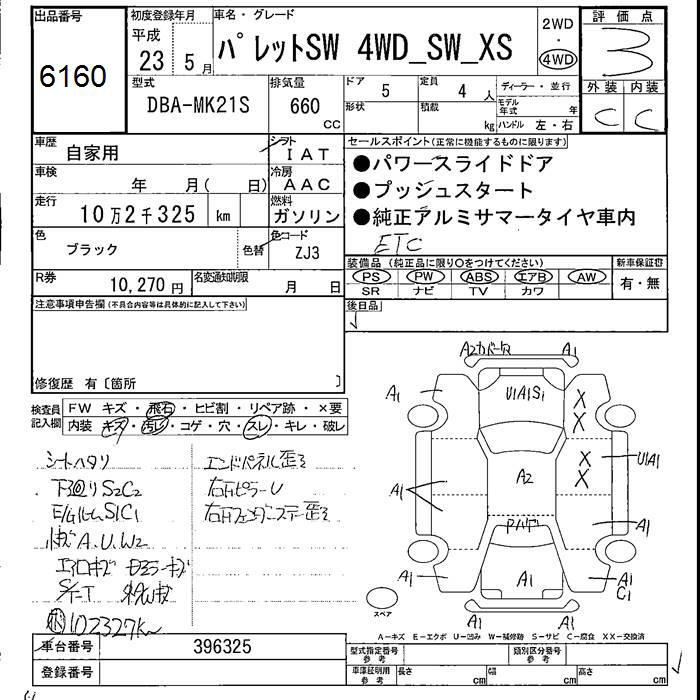 出品番号
6160
初度登録年月
平成
23 5月
車名・グレード
パレットSW 4WD_SW_XS
2WD
・
4WD
評価点
3
外装 内装
C C
型式
DBA-MK21S
排気量
660
CC
ドア
5
定員
4 人
形状
積載
kg
ディーラー・並行
モデル年式 年
ハンドル 左・右
車歴
自家用
シフト
IAT
車検
年 月( 日)
冷房
AAC
走行
10万2千325 km
燃料
ガソリン
色
ブラック
色替
色コード
ZJ3
R券
10,270 円
名変通知期限
月 日
セールスポイント(正常に機能するものに限ります)
●パワースライドドア
●プッシュスタート
●純正アルミサマータイヤ車内
ETC
装備品 (純正品に限り○をつけてください)
PS PW ABS エアB AW
SR ナビ TV カワ
新車保証書
有・無
後日品
注意事項申告欄(不具合内容等は具体的に記入して下さい)
修復歴 有〔箇所 〕
検査員
記入欄
FW キズ・飛石・ヒビ割・リペア跡・×要
内装 キズ・汚レ・コゲ・穴・スレ・キレ・破レ
シートヘタリ
下廻りS2C2
S1C1
A.U.W2
エアロキズ
102327km
エンドパネル歪ミ
右Fピラー U
A2 カバー欠
A1
A1
U1A1S1
X
X
X
X
U1A1
A2
A1
A1
A1
A1
A1
C1
A1
スペア
A―キズ E―エクボ U―凹み W―補修跡 S―サビ C―腐食 XX―交換済
車台番号
396325
登録番号
型式指定番号
参考
類別区分番号
参考
車庫証明用
参考
長さ cm
幅 cm
高さ cm